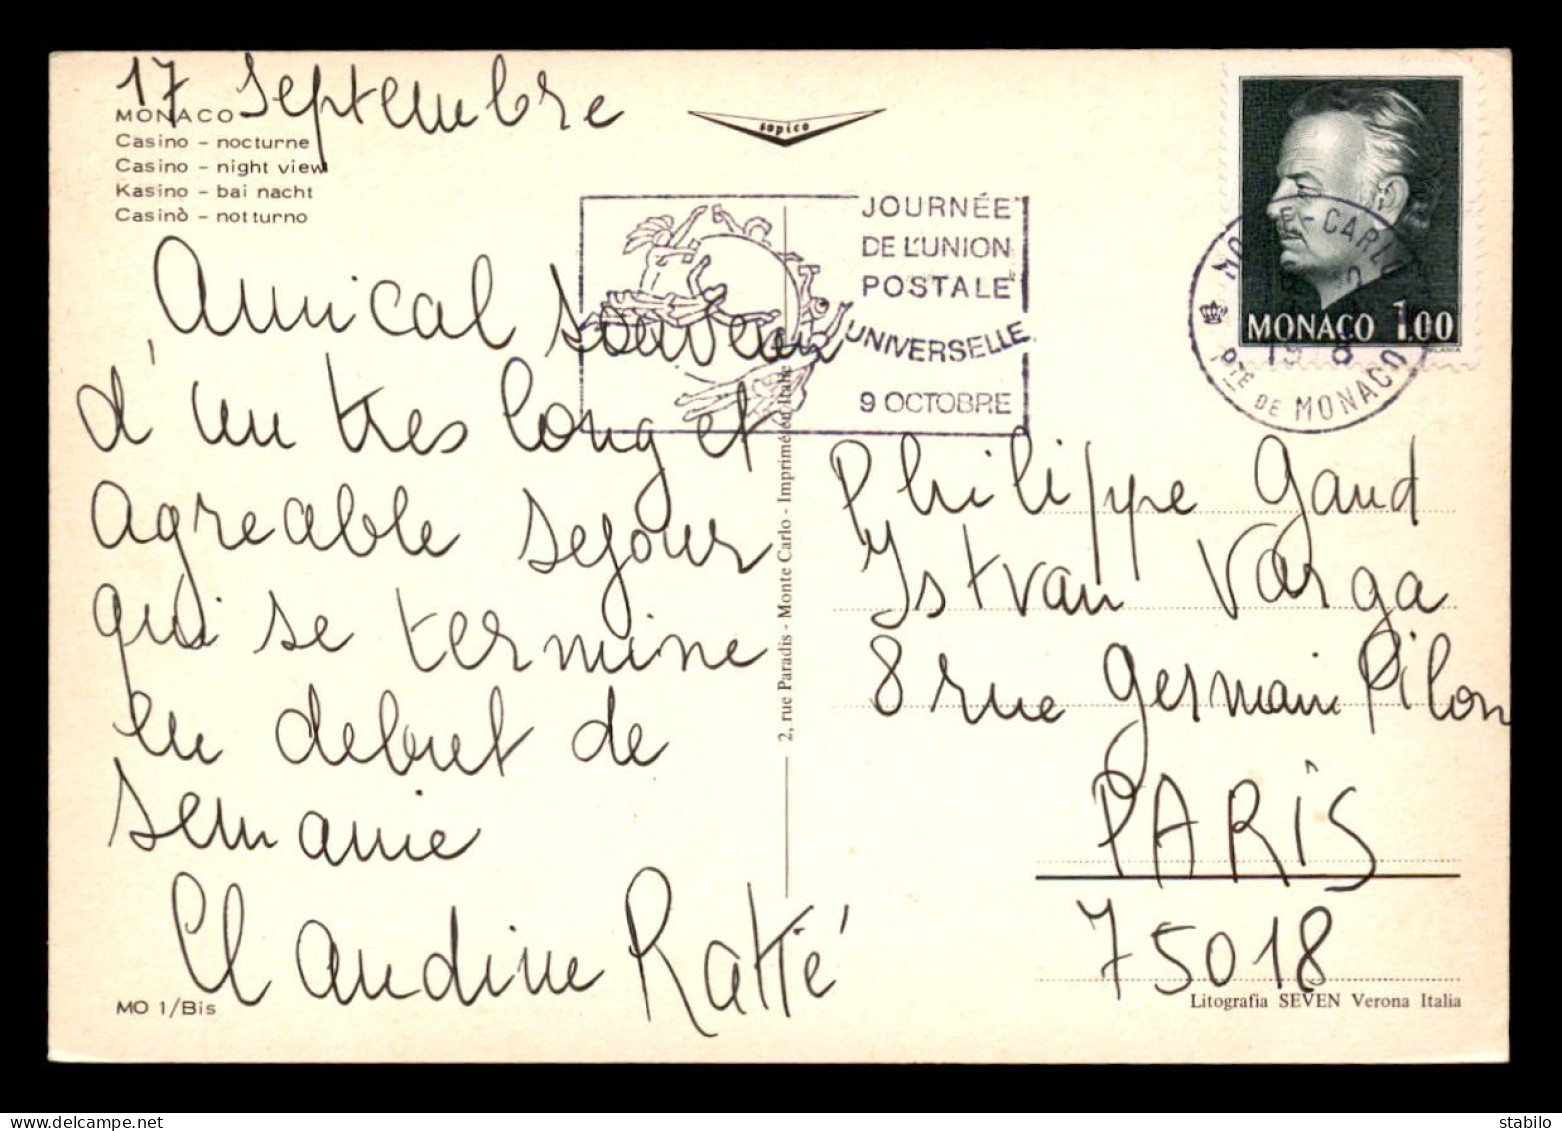 17 Septembre
MONACO
Casino - nocturne
Casino - night view
Kasino - bai nacht
Casinò - notturno
sopico
JOURNÉE
DE L'UNION
POSTALE
UNIVERSELLE
9 OCTOBRE
MONTE-CARLO
PTÉ DE MONACO
MONACO 1.00
Amical souvenir
d'un tres long et
agreable sejour
qui se termine
en debut de
semaine
Claudine Ratté
2, rue Paradis - Monte Carlo - Imprimé en Italie
Philippe Gaud
Istvan Varga
8 rue Germain Pilon
PARIS
75018
MO 1/Bis
Litografia SEVEN Verona Italia
www.delcampe.net
stabilato